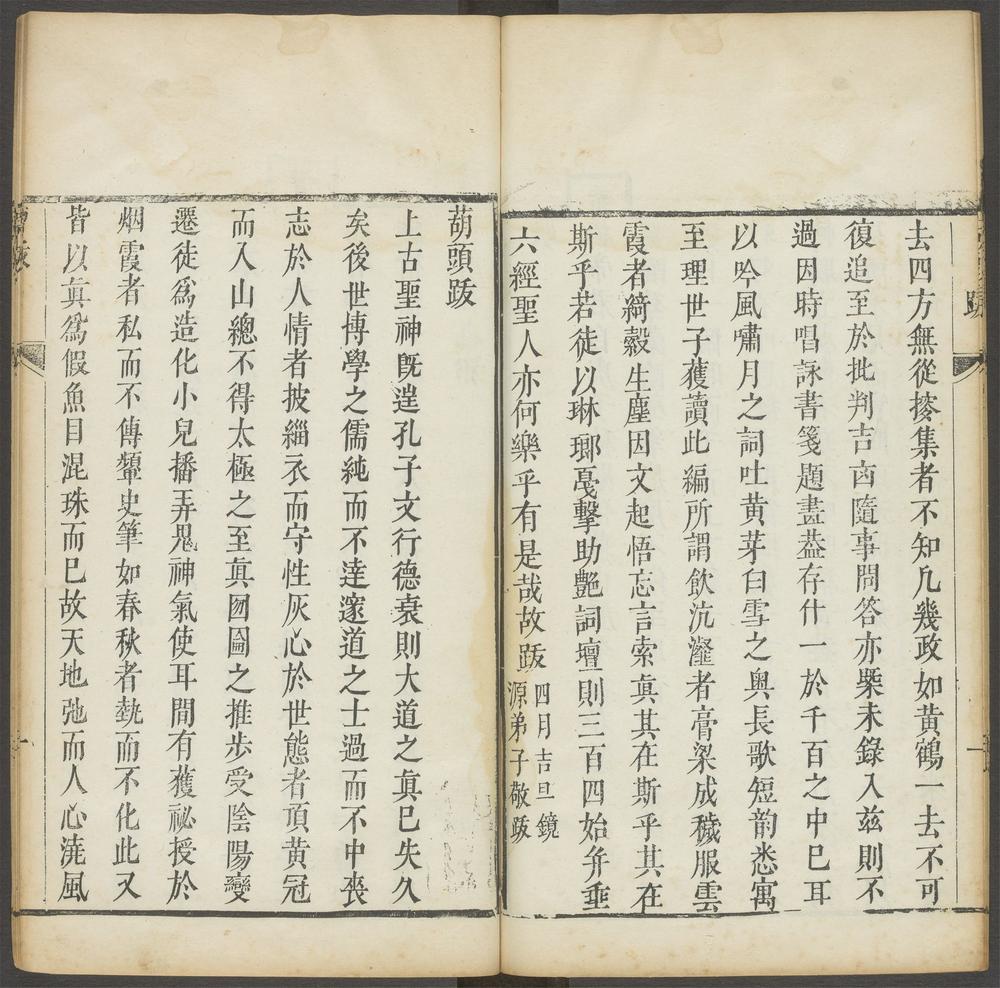 去四方無從搂集者不知凡幾政如黃鶴一去不可
復追至於批判吉凶隨事問答亦槩未錄入兹則不
過因時唱詠書箋題畫葢存什一於千百之中已耳
以吟風嘯月之詞吐黃芽白雪之奥長歌短韵悉寓
至理世子獲讀此編所謂飲沆瀣者膏粱成穢服雲
霞者綺縠生塵因文起悟忘言索眞其在斯乎其在
斯乎若徒以琳瑯戞擊助艶詞壇則三百四始并垂
六經聖人亦何樂乎有是哉故跋
四月吉旦鏡
源弟子敬跋
跋
葫頭跋
上古聖神旣遑孔子文行德衰則大道之眞已失久
矣後世博學之儒純而不達邃道之士過而不中喪
志於人情者披緇衣而守性灰心於世態者頂黃冠
而入山總不得太極之至眞囫圇之推歩受陰陽變
遷徒爲造化小兒播弄鬼神氣使耳間有獲祕授於
烟霞者私而不傳顰史筆如春秋者執而不化此又
皆以眞爲假魚目混珠而已故天地弛而人心澆風